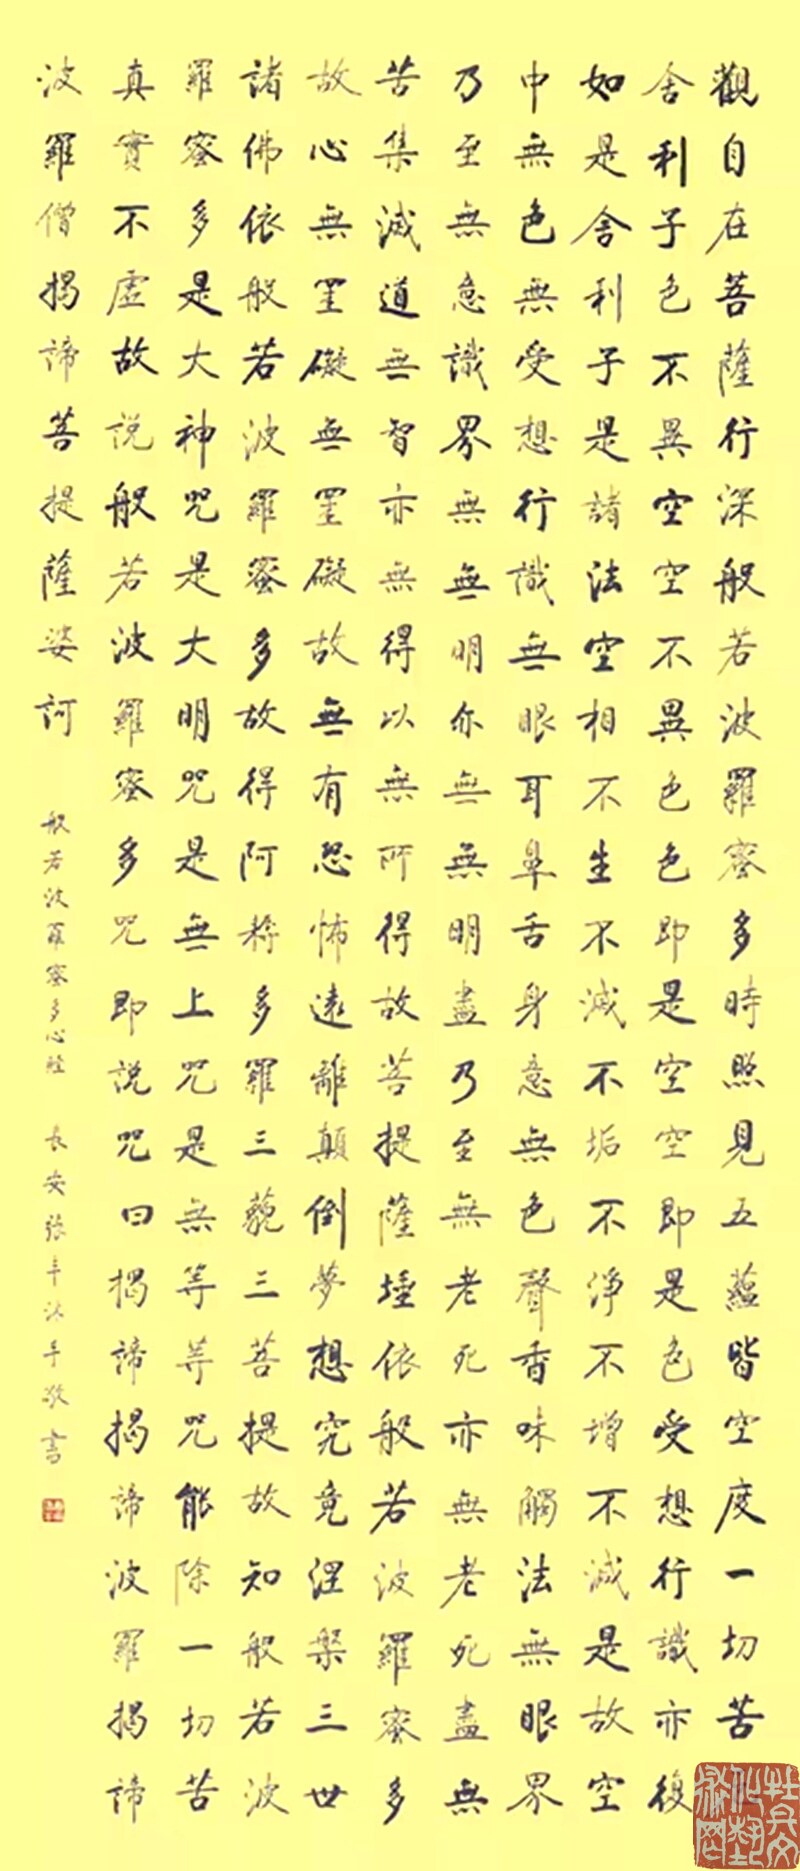 觀自在菩薩行深般若波羅蜜多時照見五蘊皆空度一切苦
舍利子色不異空空不異色色即是空空即是色受想行識亦復
如是舍利子是諸法空相不生不滅不垢不淨不增不減是故空
中無色無受想行識無眼耳鼻舌身意無色聲香味觸法無眼界
乃至無意識界無無明亦無無明盡乃至無老死亦無老死盡無
苦集滅道無智亦無得以無所得故菩提薩埵依般若波羅蜜多
故心無罣礙無罣礙故無有恐怖遠離顛倒夢想究竟涅槃三世
諸佛依般若波羅蜜多故得阿耨多羅三藐三菩提故知般若波
羅蜜多是大神咒是大明咒是無上咒是無等等咒能除一切苦
真實不虛故說般若波羅蜜多咒即說咒曰揭諦揭諦波羅揭諦
波羅僧揭諦菩提薩婆訶
般若波羅蜜多心經 長安張丰沐手敬書